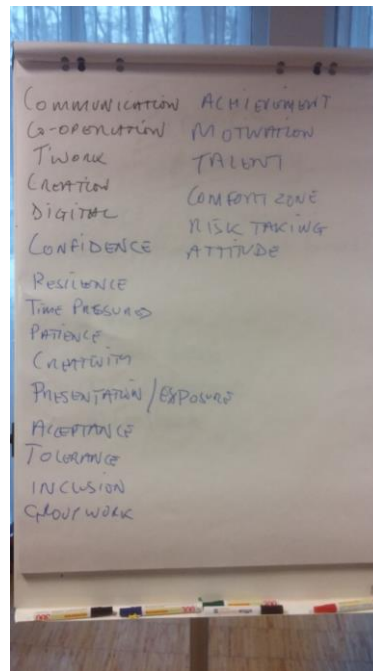 COMMUNICATION
CO-OPERATION
TWORK
CREATION
DIGITAL
CONFIDENCE
RESILIENCE
TIME PRESSURED
PATIENCE
CREATIVITY
PRESENTATION/EXPOSURE
ACCEPTANCE
TOLERANCE
INCLUSION
GROUPWORK
ACHIEVEMENT
MOTIVATION
TALENT
COMFORT ZONE
RISK TAKING
ATTITUDE